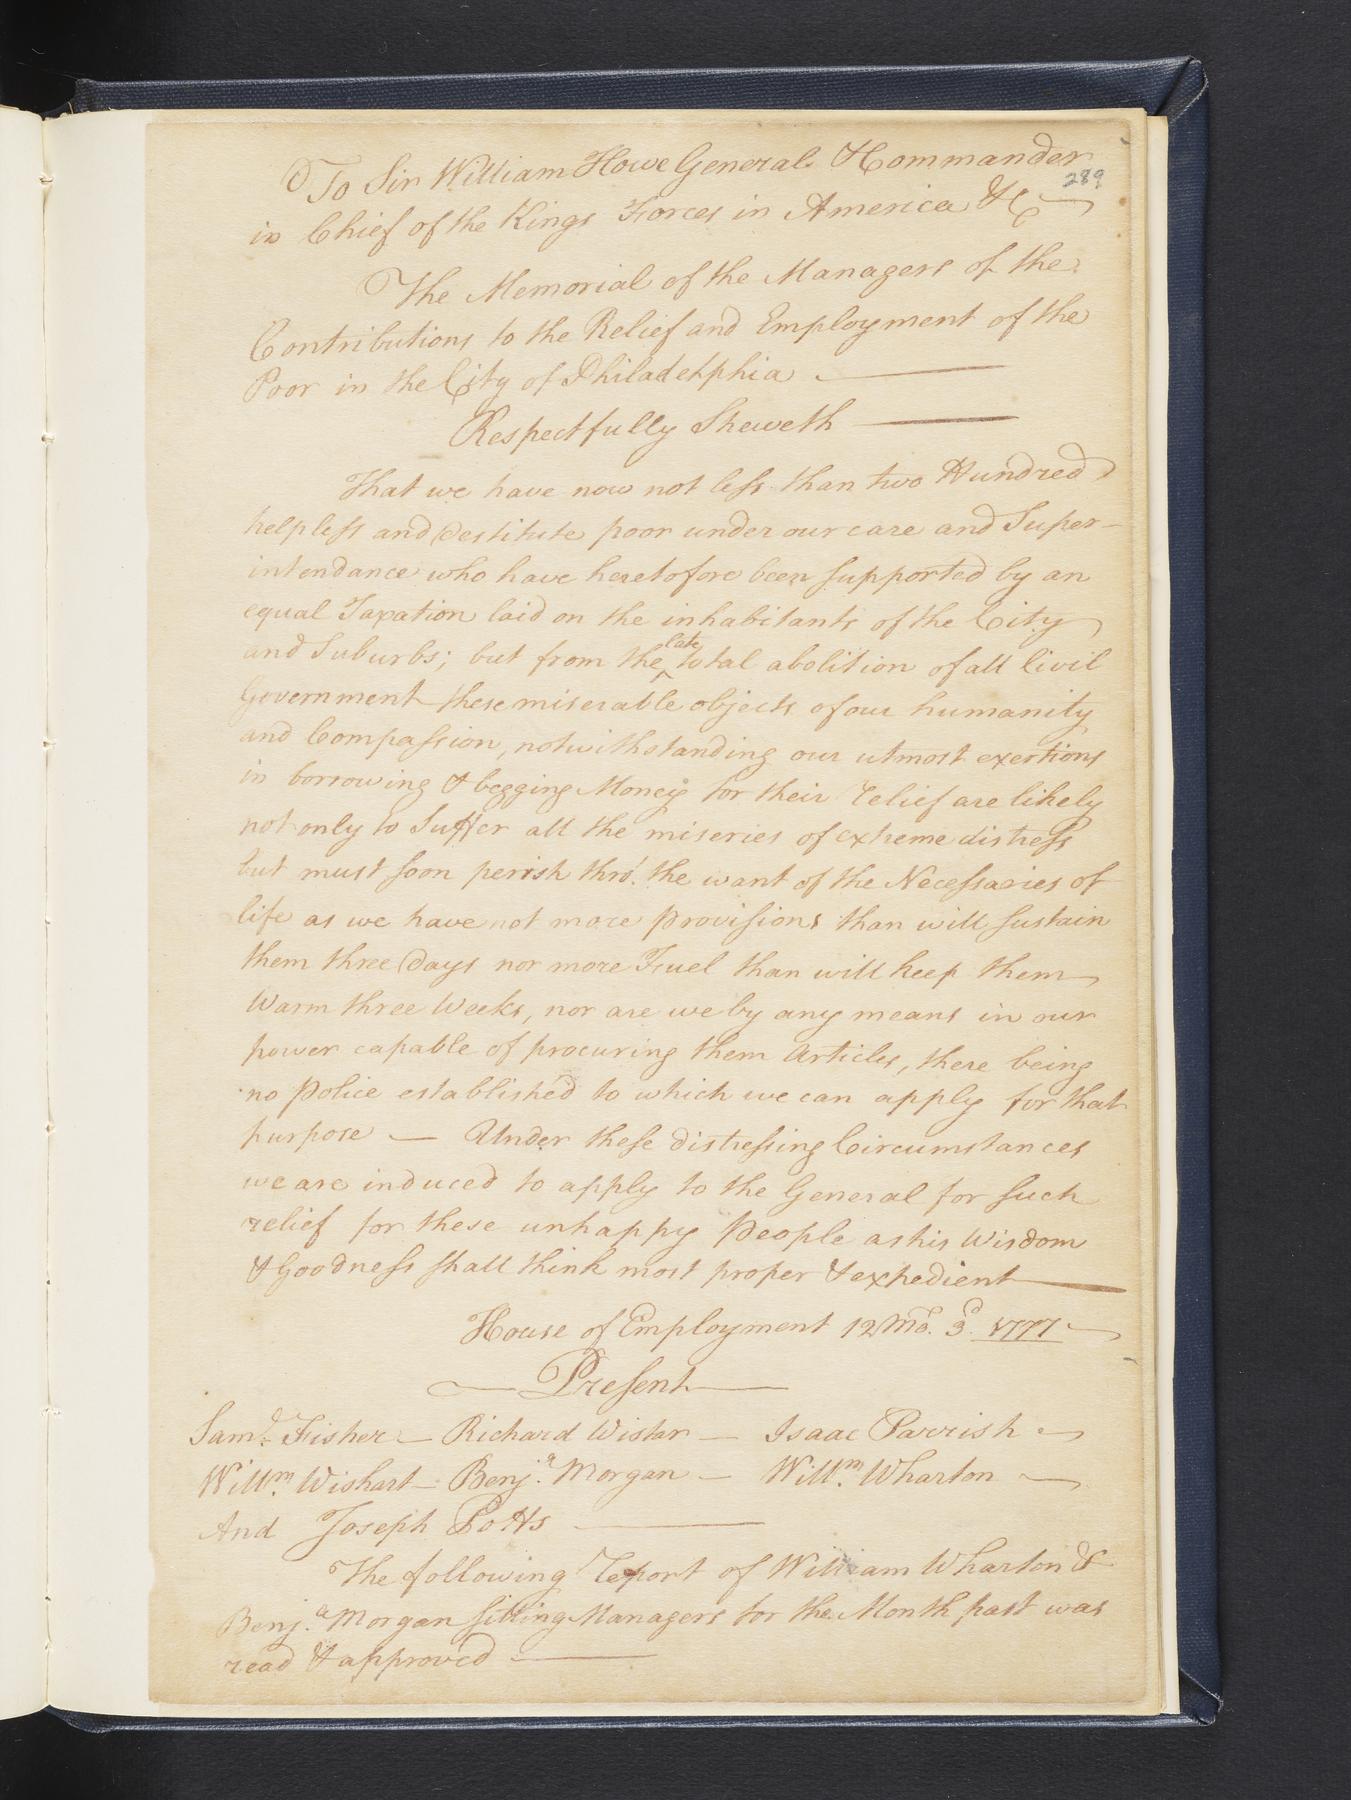 To Sir William Howe General & Commander
289
in Chief of the Kings Forces in America &c
The Memorial of the Managers of the
Contributions to the Relief and Employment of the
Poor in the City of Philadelphia
Respectfully Sheweth
That we have now not less than two Hundred
helpless and destitute poor under our care and Super-
intendance who have heretofore been supported by an
equal Taxation laid on the inhabitants of the City
and Suburbs; but from the ^late total abolition of all Civil
Government these miserable objects of our humanity
and Compassion, notwithstanding our utmost exertions
in borrowing & begging Money for their relief are likely
not only to Suffer all the miseries of extreme distress
but must soon perish thro'. the want of the Necessaries of
life as we have not more provisions than will sustain
them three days nor more Fuel than will keep them
Warm three Weeks, nor are we by any means in our
power capable of procuring them Articles, there being
no Police established to which we can apply for that
purpose — Under these distressing Circumstances
we are induced to apply to the General for such
relief for these unhappy People as his Wisdom
& Goodness shall think most proper & expedient
House of Employment 12 Mo. 3d. 1777
Present
Saml. Fisher — Richard Wistar — Isaac Parrish
Willm. Wishart — Benja. Morgan — Willm. Wharton
And Joseph Potts
The following Report of William Wharton &
Benja. Morgan sitting Managers for the Month past was
read & approved